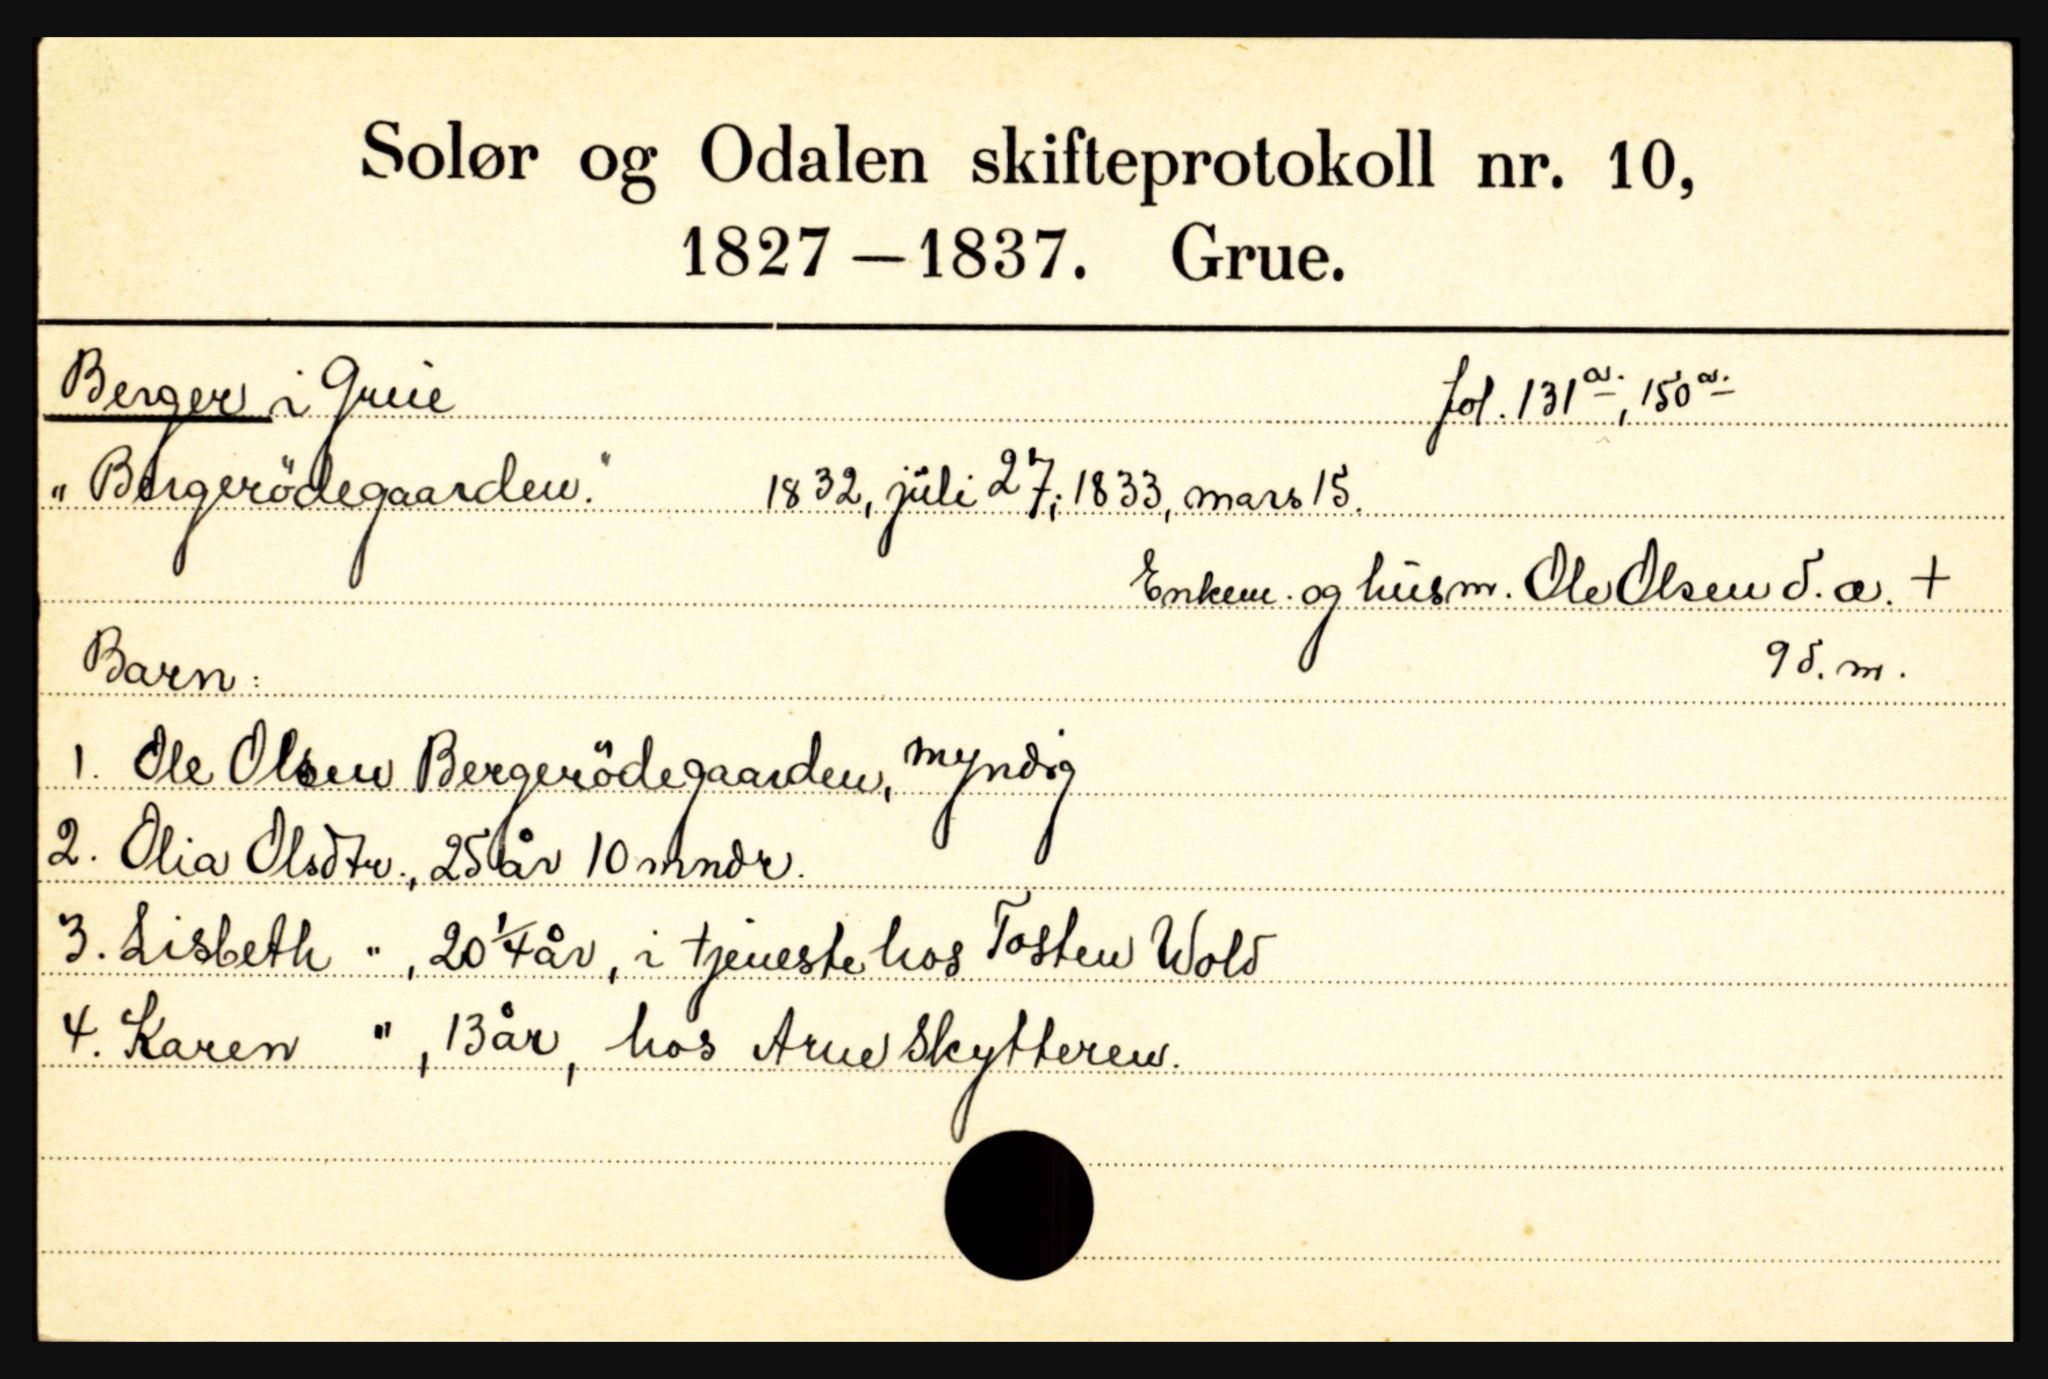 Solør og Odalen skifteprotokoll nr. 10,
1827 – 1837. Grue.
Berger i Grue fol. 131 a., 150 a.
"Bergerödegaarden." 1832, juli 27; 1833, mars 15.
Enkem. og husm. Ole Olsen d. æ. +
9 d. m.
Barn:
1. Ole Olsen Bergerödegaarden, myndig
2. Olia Olsdtr., 25 år 10 mndr.
3. Lisbeth " , 20 1/4 år, i tjeneste hos Tosten Wold
4. Karen " , 13 år, hos Arne Skytteren.